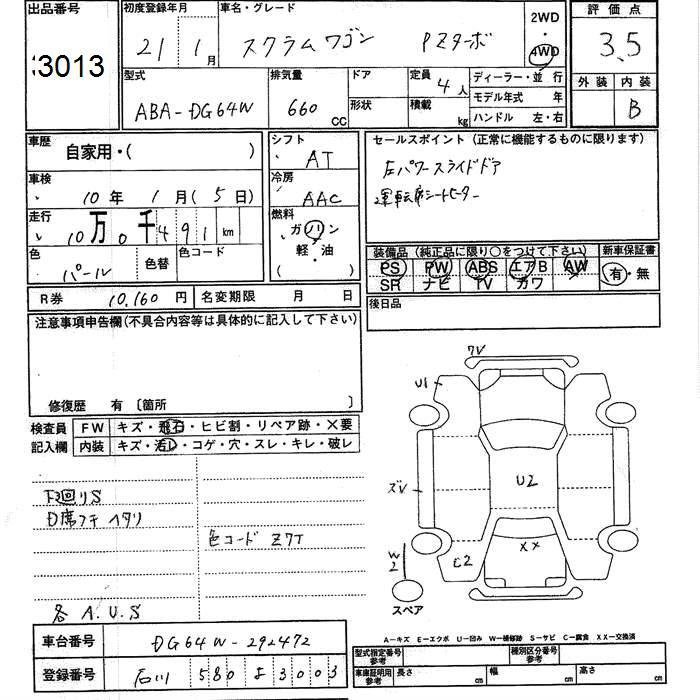 出品番号
3013
初度登録年月
21 1月
車名・グレード
スクラムワゴン PZターボ
2WD
・
4WD
評価点
3.5
型式
ABA-DG64W
排気量
660 CC
ドア
形状
定員 4人
積載 kg
ディーラー・並行
モデル年式 年
ハンドル 左・右
外装 内装
B
車歴
自家用・( )
車検
10年 1月 (5日)
走行
10万0千491km
色
パール
色替
色コード
シフト
AT
冷房
AAC
燃料
ガソリン
軽・油
( )
セールスポイント (正常に機能するものに限ります)
左パワースライドドア
運転席シートヒーター
装備品 (純正品に限り○をつけて下さい)
PS PW ABS エアB AW
SR ナビ TV カワ
新車保証書
有・無
R券 10,160円 名変期限 月 日
後日品
注意事項申告欄(不具合内容等は具体的に記入して下さい)
修復歴 有〔箇所 〕
検査員
記入欄
FW キズ・飛石・ヒビ割・リペア跡・×要
内装 キズ・汚レ・コゲ・穴・スレ・キレ・破レ
下廻りS
D席フチ ヘタリ
色コード Z7T
各 A.U.S
車台番号 DG64W-292472
登録番号 石川 580 3003
U1
ズV
U2
XX
C2
W2
スペア
A-キズ E-エクボ U-凹み W-補修跡 S-サビ C-腐食 XX-交換済
型式指定番号
参考
種別区分番号
参考
車庫証明用
参考
長さ cm 幅 cm 高さ cm